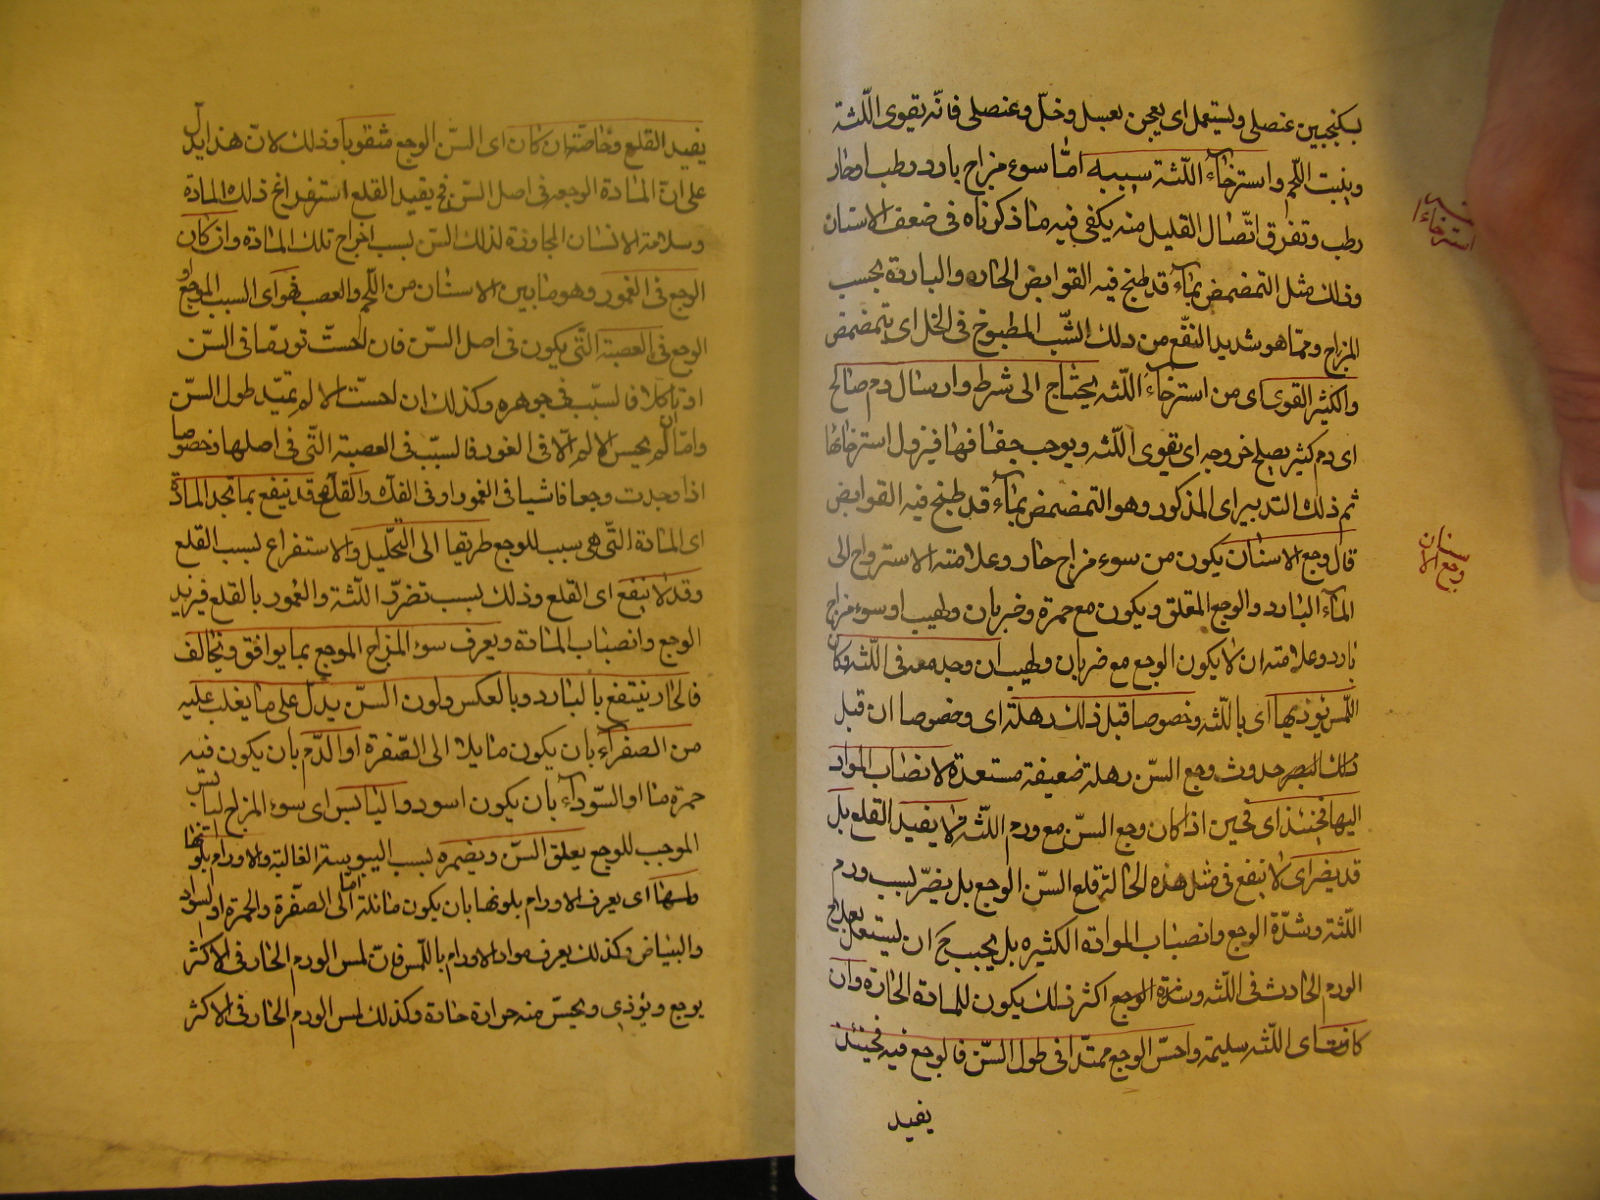 بسكنجبين عنصلى ويستعمل اى يعجن بعسل وخلّ وعنصلى فانّه يقوى اللّثة
وينبت اللّحم واسترخآء اللّثة سببه امّا سوء مزاج بارد رطب او حار
استرخاء
رطب وتفرق اتّصال القليل منه يكفى فيه ما ذكرناه فى ضعف الاسنان
وذلك مثل التمضمض بمآء قد طبخ فيه القوابض الحاره والباردة بحسب
المزاج وممّا هو شديد النفع من ذلك الشّب المطبوخ فى الخل اى يتمضمض
والكثير القوى اى من استرخآء اللّثه يحتاج الى شرط وارسال دم صالح
اى دم كثير يصلح خروجه اى يقوى اللّثه ويوجب جفافها فيزول استرخائها
ثم ذلك التدبير اى المذكور وهو التمضمض بمآء قد طبخ فيه القوابض
قال وجع الاسنان يكون من سوء مزاج حار وعلامته الاسترواح الى
وجع الاسنان
المآء البارد والوجع المقلق ويكون مع حمرة وضربان ولهيب او سوء مزاج
بارد وعلامته ان لا يكون الوجع مع ضربان ولهيب ان وجد معه فى اللّثه وكان
اللّمس يؤذيها اى باللّثه وخصوصا قبل ذلك رهلة اى وخصوصا ان قبل
ذلك حدوث وجع السّن رهلة ضعيفة مستعدة لانصباب المواد
اليها فحينئذ اى فحين اذا كان وجع السّن مع ورم اللّثة لا يفيد القلع بل
قد يضر اى لا ينفع فى مثل هذه الحالة قلع السّن الوجع بل يضرّ بسبب ورم
اللّثة وشدّة الوجع وانصباب الموادة الكثيره بل يجب ح ان يستعمل بعلاج
الورم الحادث فى اللّثه وشدة الوجع اكثر ذلك يكون للمادة الحارة وان
كانت اى اللّثه سليمة واحسّ الوجع ممتدّا فى طول السّن فالوجع فيه فحينئذ
يفيد
يفيد القلع وخاصّة ان كان اى السّن الوجع مثقوبا وذلك لانّ هذا يدلّ
على انّ المادة الوجعه فى اصل السّن فح يفيد القلع استفراغ ذلك المادّة
وسلامة الاسنان المجاورة لذلك السّن بسبب اخراج تلك المادة وان كان
الوجع فى العمور وهو ما بين الاسنان من اللّحم والعصب فهو اى السبب الموجع او
الوجع فى العصبة الّتى يكون فى اصل السّن فان احسّت تورّما فى السّن
او تاكلا فالسبب فى جوهره وكذلك ان احسّت الالم يمتد طول السّن
وامّا ان لم يحس الالم الّا فى الغور فالسبب فى العصبة الّتى فى اصلها وخصوصا
اذا وجدت وجعا فاشيا فى العمور او فى الفك والقلع قد ينفع بما تجد المادّة
اى المادة الّتى هى سبب للوجع طريقا الى التحليل والاستفراغ بسبب القلع
وقد لا ينفع اى القلع وذلك بسبب تضرّر اللّثة والعمور بالقلع فيزيد
الوجع وانصباب المادة ويعرف سوء المزاج الموجع بما يوافق ويخالف
فالحار ينتفع بالبارد وبالعكس ولون السّن يدلّ على ما يغلب عليه
من الصفرآء بان يكون مايلا الى الصّفرة او الدّم بان يكون فيه
حمرة ما او السّودآء بان يكون اسود واليابس اى سوء المزاج اليابس
الموجب للوجع يعلق السّن ويضمره بسبب اليبوسة الغالبة والاورام بلونها
ولمسها اى يعرف الاورام بلونها بان يكون مائلة امّا الى الصّفرة والحمرة او السواد
والبياض وكذلك يعرف مواد الاورام باللّمس فانّ لمس الورم الحار فى الاكثر
يوجع ويؤذى ويحسّ منه حرارة حادة وكذلك لمس الورم الحار فى الاكثر